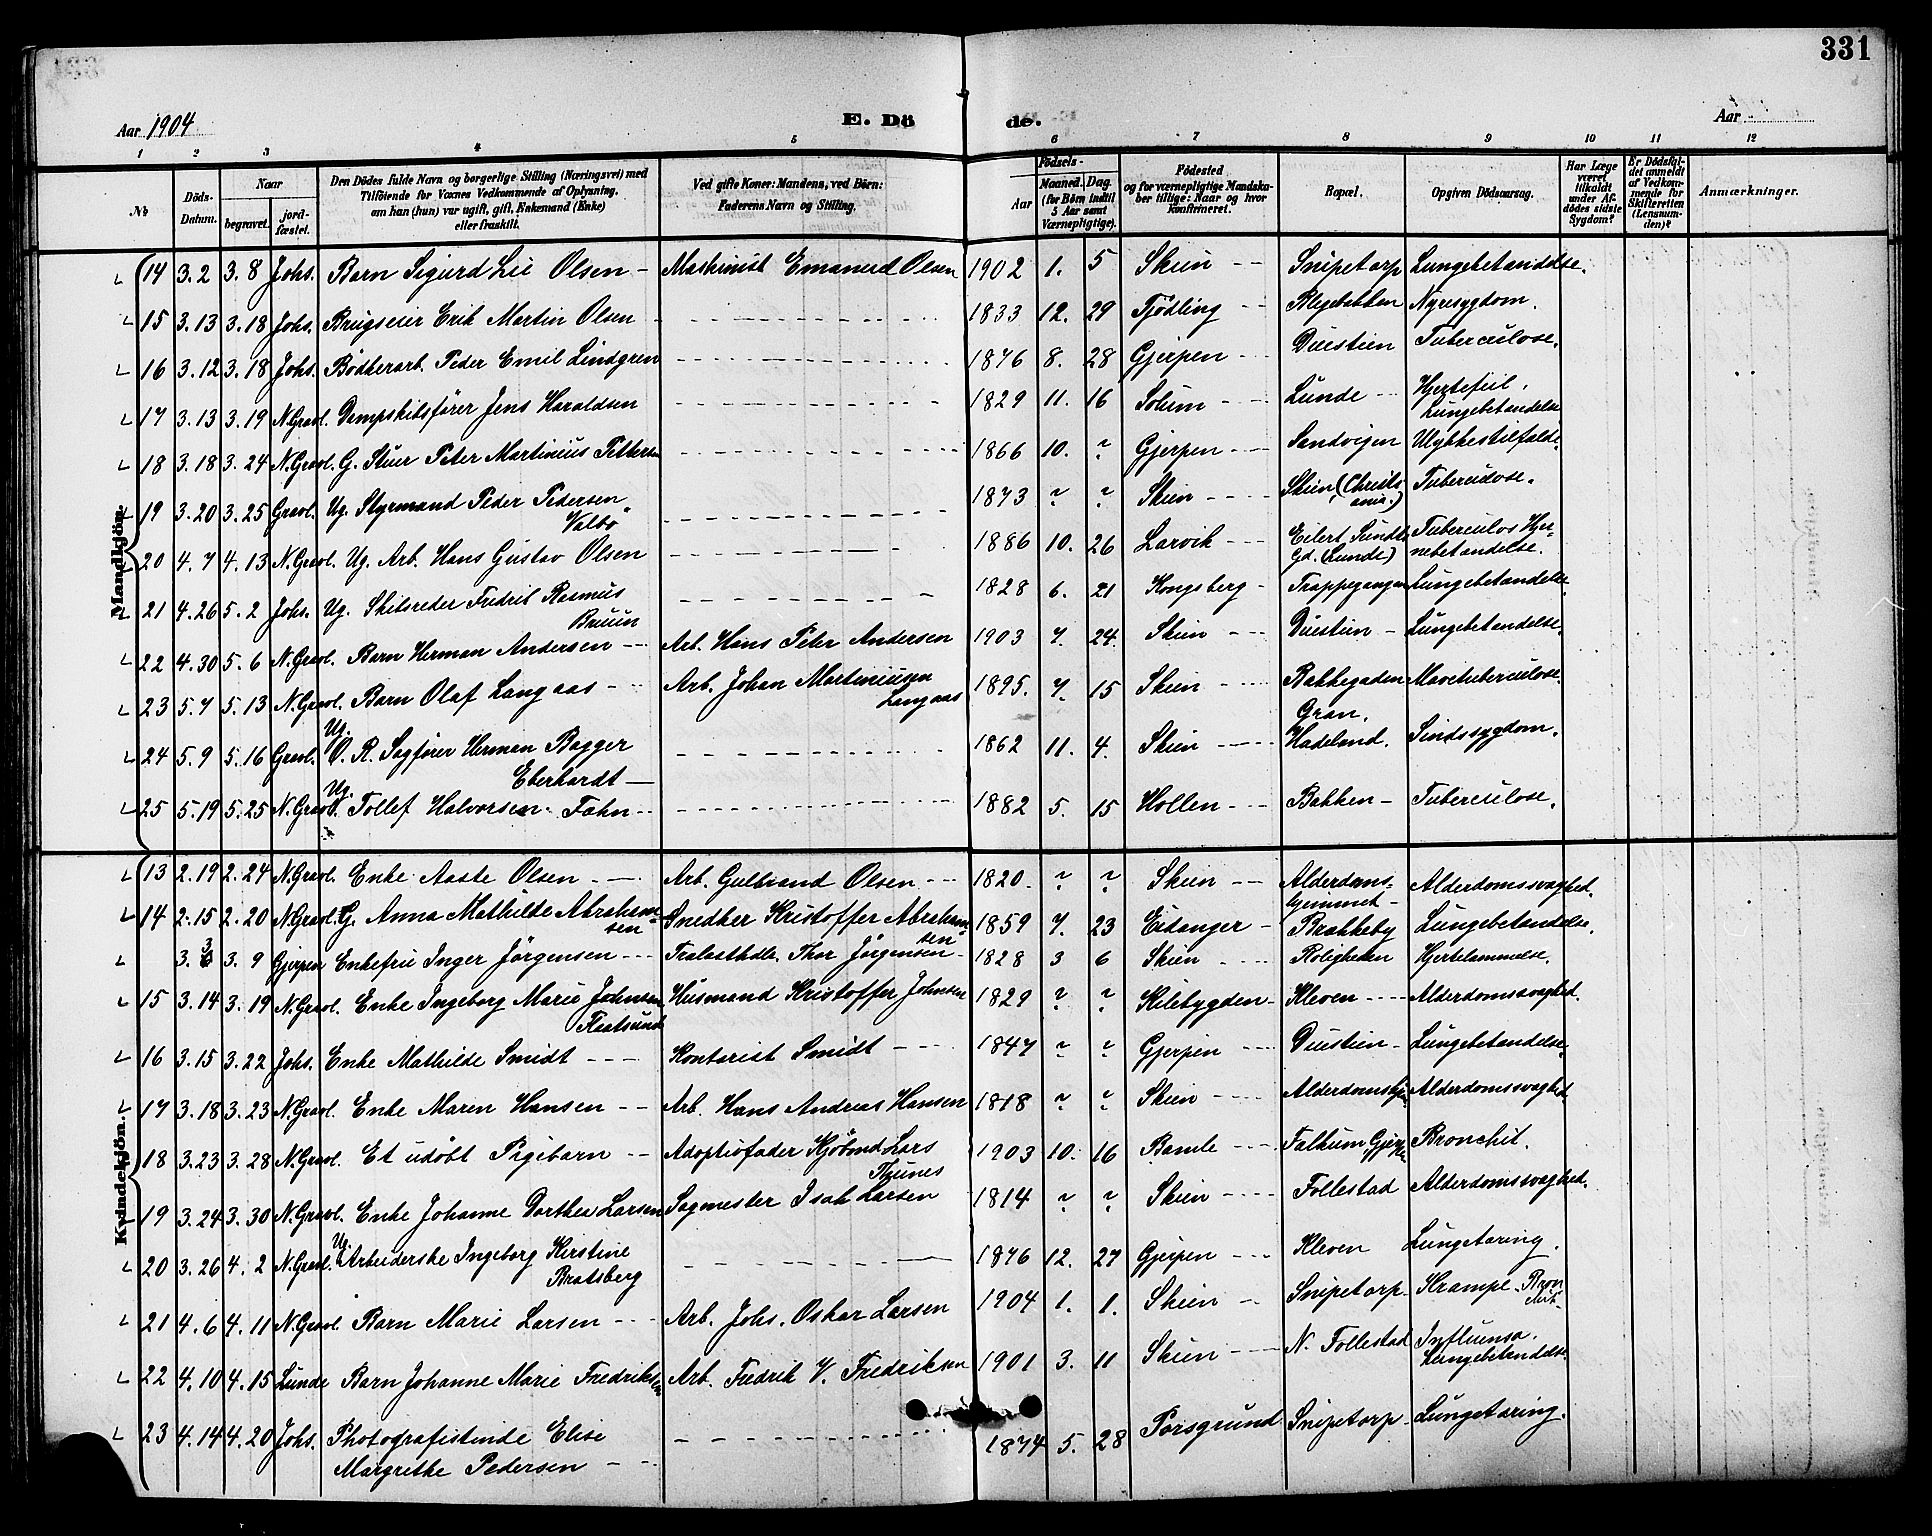 331
Aar 1904 E. Dö de. Aar
1 2 3 4 5 6 7 8 9 10 11 12
No
Döds-Datum.
Naar
begravet. jord-fæstet.
Den Dödes fulde Navn og borgerlige Stilling (Næringsvei) med
Tilföiende for Voxnes Vedkommende af Oplysning,
om han (hun) var ugift, gift, Enkemand (Enke)
eller fraskilt.
Ved gifte Koner: Mandens, ved Börn:
Faderens Navn og Stilling.
Födsels-
Aar Maaned. Dag.
(for Börn indtil 5 Aar samt Værnepligtige).
Födested
og for værnepligtige Mandska-
ber tillige: Naar og hvor
konfirmeret.
Bopæl.
Opgiven Dödsaarsag.
Har Læge været tilkaldt under Afdödes sidste Sygdom?
Er Dödsfaldet anmeldt af Vedkommende for Skifteretten (Lensmanden)?
Anmærkninger.
Mandkjön.
14 3.2 3.8 Johs. Barn Sigurd Lie Olsen - Maskinist Emanuel Olsen 1902 1. 5 Skien Snipetorp Lungebetændelse.
15 3.13 3.18 Johs. Brugseier Erik Martin Olsen 1833 12. 29 Tjödling Blegebakken Nyresygdom.
16 3.12 3.18 Johs. Bödkerarb. Peder Emil Lindgren 1876 8. 28 Gjerpen Duestien Tuberculose.
17 3.13 3.19 N.Gravl. Dampskibsfører Jens Haraldsen 1829 11. 16 Solum Lunde Hjertefeil.
Lungebetændelse
18 3.18 3.24 N.Gravl. G. Stuer Peter Martinius Pettersen 1866 10. ? Gjerpen Sandvigen Ulykkestilfælde.
19 3.20 3.25 Gravl. Ug. Styrmand Peder Pedersen 1873 ? ? Skien Skien (Christi- Tuberculose.
Valbö ania.)
20 4.7 4.13 N.Gravl. Ug. Arb. Hans Gustav Olsen 1886 10. 26 Larvik Eilert Sundts Tuberculos Hjer-
Gd. (Lunde) nebetændelse.
21 4.26 5.2 Johs. Ug. Skibsreder Fredrik Rasmus 1828 6. 21 Kongsberg Trappegangen Lungebetændelse.
Bruun
22 4.30 5.6 N.Gravl. Barn Herman Andersen Arb. Hans Peter Andersen 1903 7. 24. Skien Duestien - Lungebetændelse.
23 5.7 5.13 N.Gravl. Barn Olaf Langaas Arb. Johan Martiniusen 1895. 7. 15 Skien Bakkegaden Mavetuberculose.
Langaas
Ug. Gran.
24 5.9 5.16 Gravl. O. R. Sagfører Herman Bagger 1862 11. 4. Skien Hadeland. Sindssygdom.
Eberhardt
Ug.
25 5.19 5.25 N.Gravl. Tollef Halvorsen Fahn 1882 5. 15 Hollen Bakken - Tuberculose.
Kvindekjön.
13 2.19 2.24 N.Gravl. Enke Aaste Olsen Arb. Gulbrand Olsen 1820. ? ? Skien Alderdoms- Alderdomssvaghed.
hjemmet -
14 2.15 2.20 N.Gravl. G. Anna Mathilde Abraham- Snedker Kristoffer Abraham- 1859 7. 23 Eidanger Brækkeby Lungebetændelse.
sen sen
3. 3 3.9 Gjerpen Enkefru Inger Jörgensen Trælasthdlr. Thor Jörgensen 1828 3 6 Skien Roligheden Hjertelammelse.
15 3.14 3.19 N.Gravl. Enke Ingeborg Marie Johnsen Husmand Kristoffer Johnsen 1829 ? ? Kilebygden Kleven Alderdomssvaghed.
16 3.15 3.22 Johs. Enke Mathilde Smidt Kontorist Smidt 1847 ? ? Gjerpen Duestien Lungebetændelse.
17 3.18 3.23 N.Gravl. Enke Maren Hansen Arb. Hans Andreas Hansen 1818 ? ? Skien Alderdomshjm. Alderdomssvaghed
18 3.23 3.28 N.Gravl. Et udöbt Pigebarn Adoptivfader Kjöbmd Lars 1903 10. 16 Bamle Falkum Gjerpen Bronchit.
Thunes
19 3.24 3.30 N.Gravl. Enke Johanne Dorthea Larsen Sagmester Isak Larsen 1814 ? ? Skien Follestad Alderdomssvaghed.
Ug.
20 3.26 4.2 N.Gravl. Arbeiderske Ingeborg Kirstine 1876 12. 27 Gjerpen Kleven Lungetæring.
Bratsberg
21 4.6 4.11 N.Gravl. Barn Marie Larsen Arb. Johs. Oskar Larsen 1904 1. 1. Skien Snipetorp Krampe. Bron
chit.
22 4.10 4.15 Lunde Barn Johanne Marie Fredriksen Arb. Fredrik V. Fredriksen 1901 3. 11 Skien N. Follestad Influensa.
Lungebetændelse.
23 4.14 4.20 Johs. Photografistinde Elise 1874 5. 28 Porsgrund Snipetorp Lungetæring.
Margrethe Pedersen